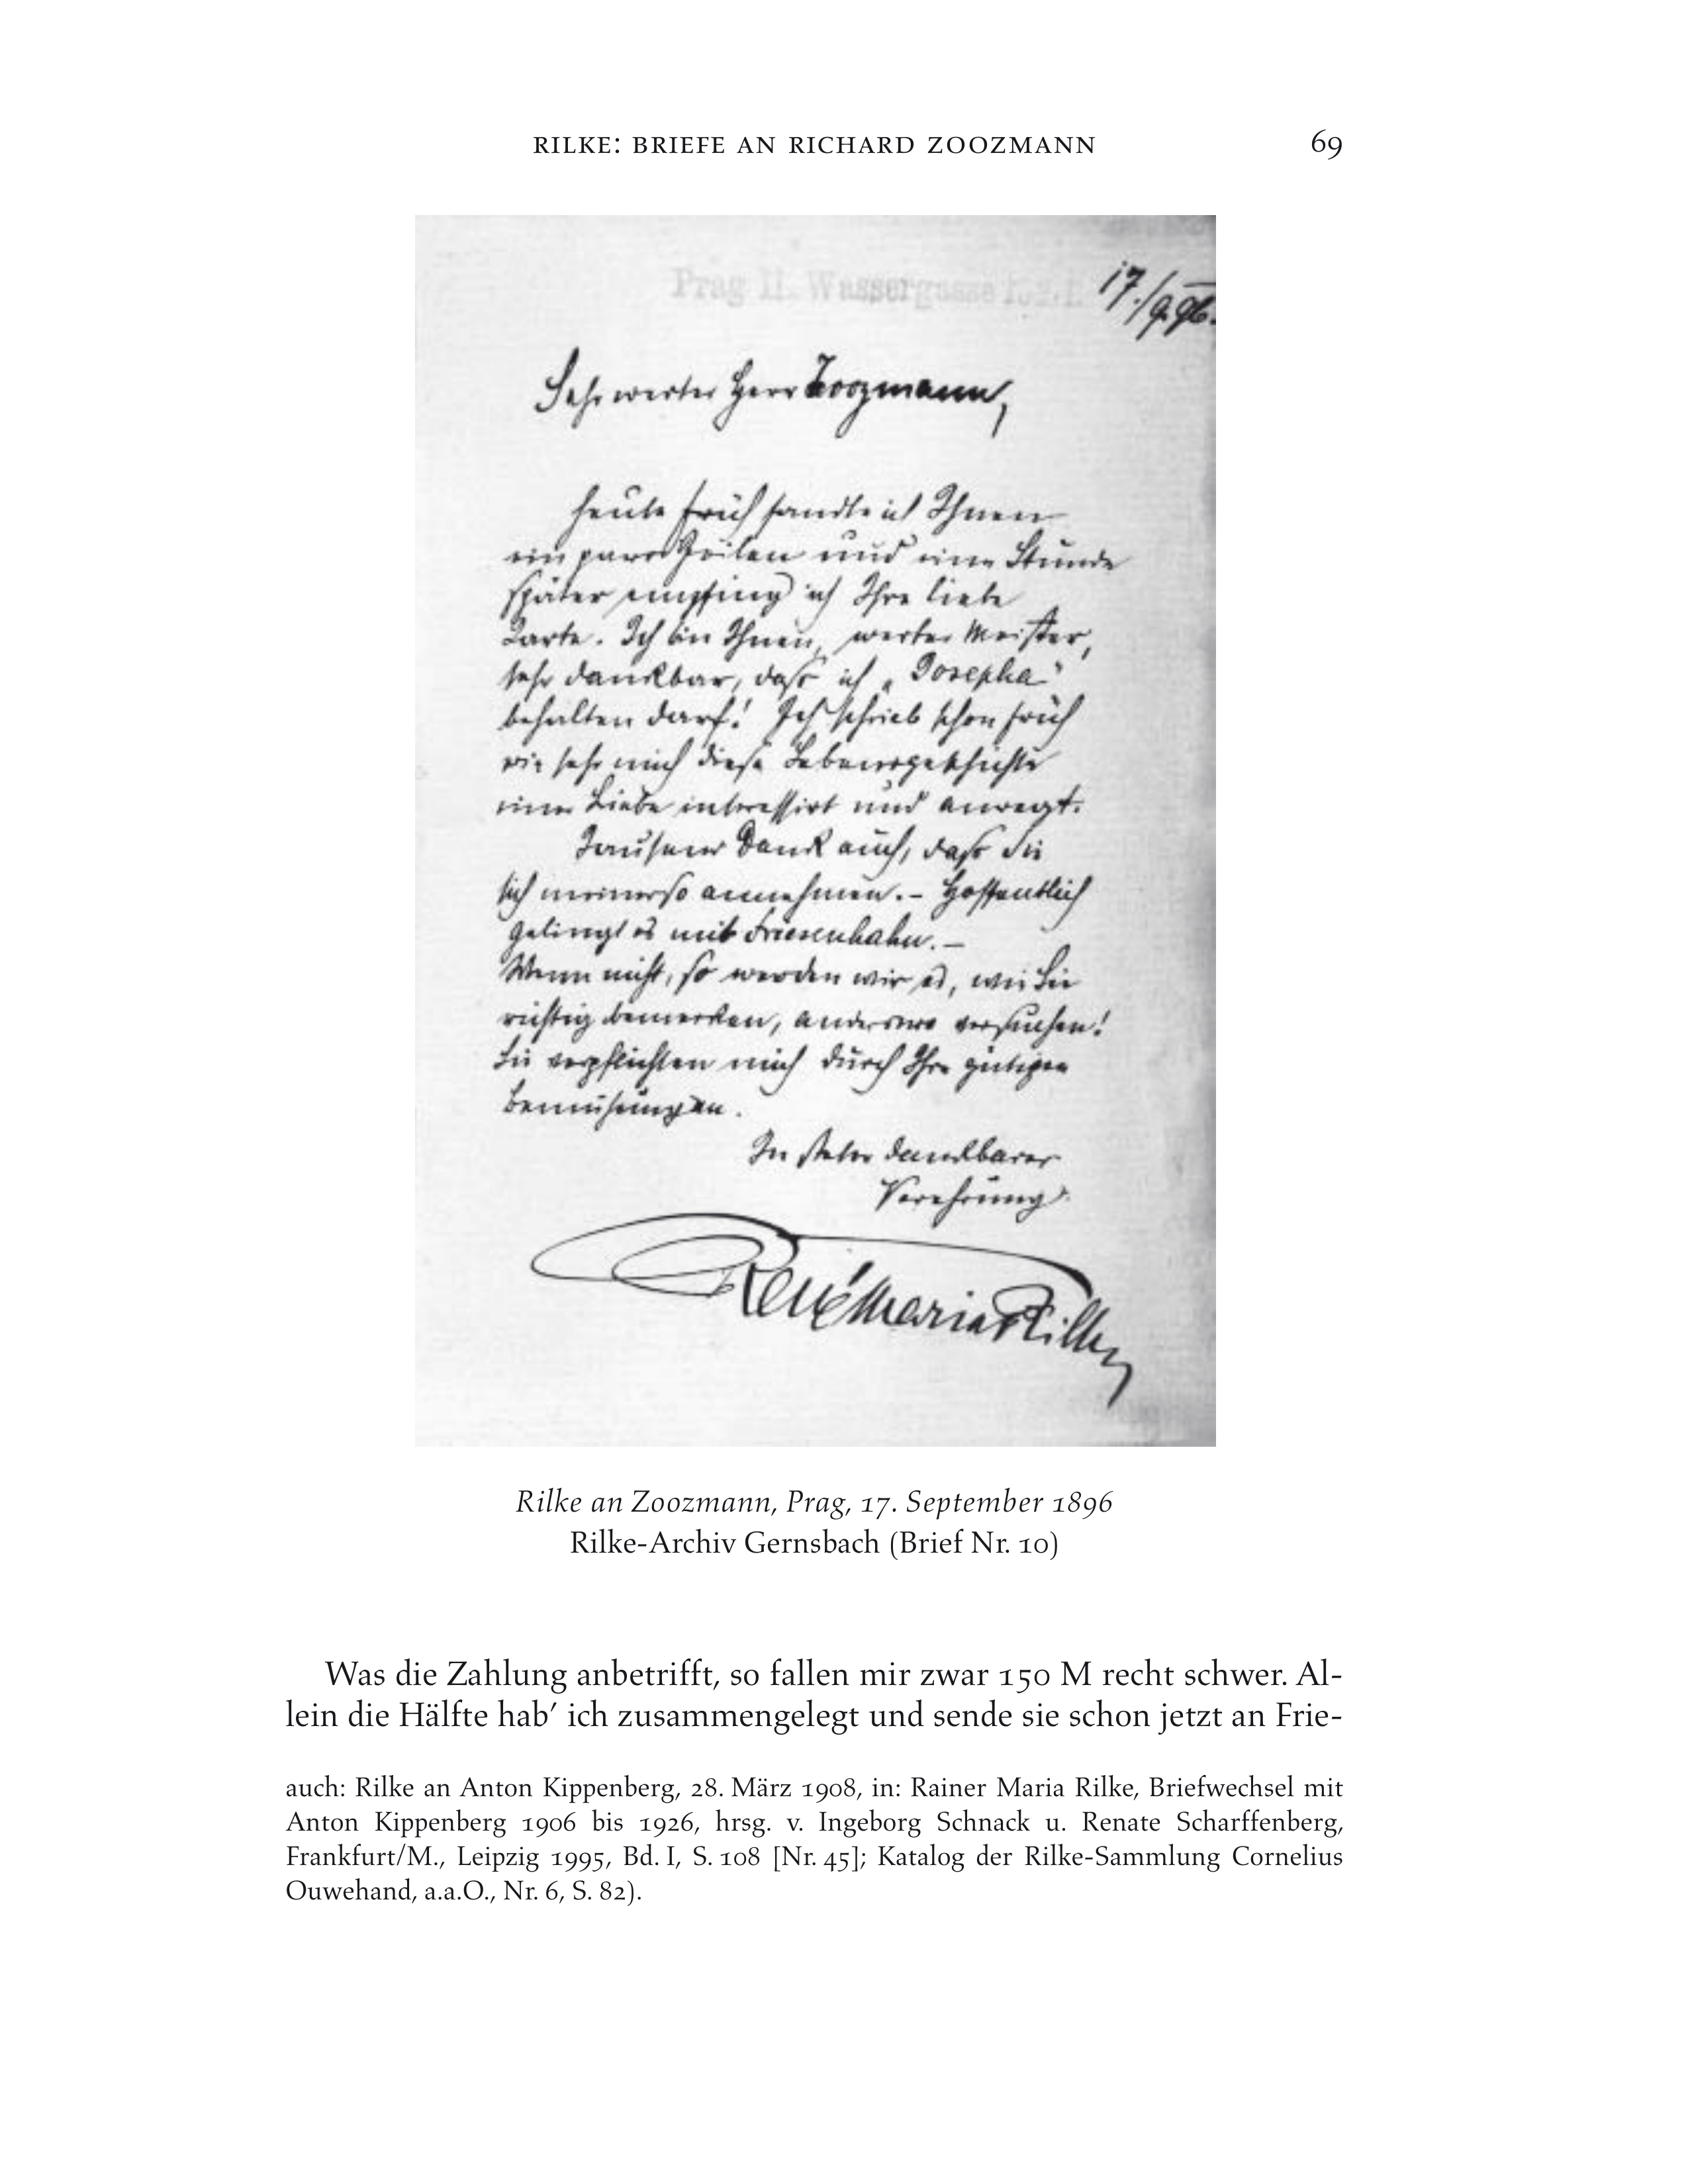 RILKE: BRIEFE AN RICHARD ZOOZMANN 69
Prag II. Wassergasse
17./9.96.
Sehr werter Herr Zoozmann,
heute früh sandte ich Ihnen
ein paar Zeilen und eine Stunde
später empfing ich Ihre liebe
Karte. Ich bin Ihnen, werter Meister,
sehr dankbar, dass ich „Josepha"
behalten darf! Ich schrieb schon früh
wie sehr mich diese Lebensgeschichte
einer Liebe interessirt und anregt.
Tausend Dank auch, dass Sie
sich meiner so annehmen. – Hoffentlich
gelingt es mit Friesenhahn. –
Wenn nicht, so werden wir es, wie Sie
richtig bemerken, anderswo versuchen!
Sie verpflichten mich durch Ihre gütigen
Bemühungen.
In steter dankbarer
Verehrung
René Maria Rilke
Rilke an Zoozmann, Prag, 17. September 1896
Rilke-Archiv Gernsbach (Brief Nr. 10)
Was die Zahlung anbetrifft, so fallen mir zwar 150 M recht schwer. Al-
lein die Hälfte hab’ ich zusammengelegt und sende sie schon jetzt an Frie-
auch: Rilke an Anton Kippenberg, 28. März 1908, in: Rainer Maria Rilke, Briefwechsel mit
Anton Kippenberg 1906 bis 1926, hrsg. v. Ingeborg Schnack u. Renate Scharffenberg,
Frankfurt/M., Leipzig 1995, Bd. I, S. 108 [Nr. 45]; Katalog der Rilke-Sammlung Cornelius
Ouwehand, a.a.O., Nr. 6, S. 82).